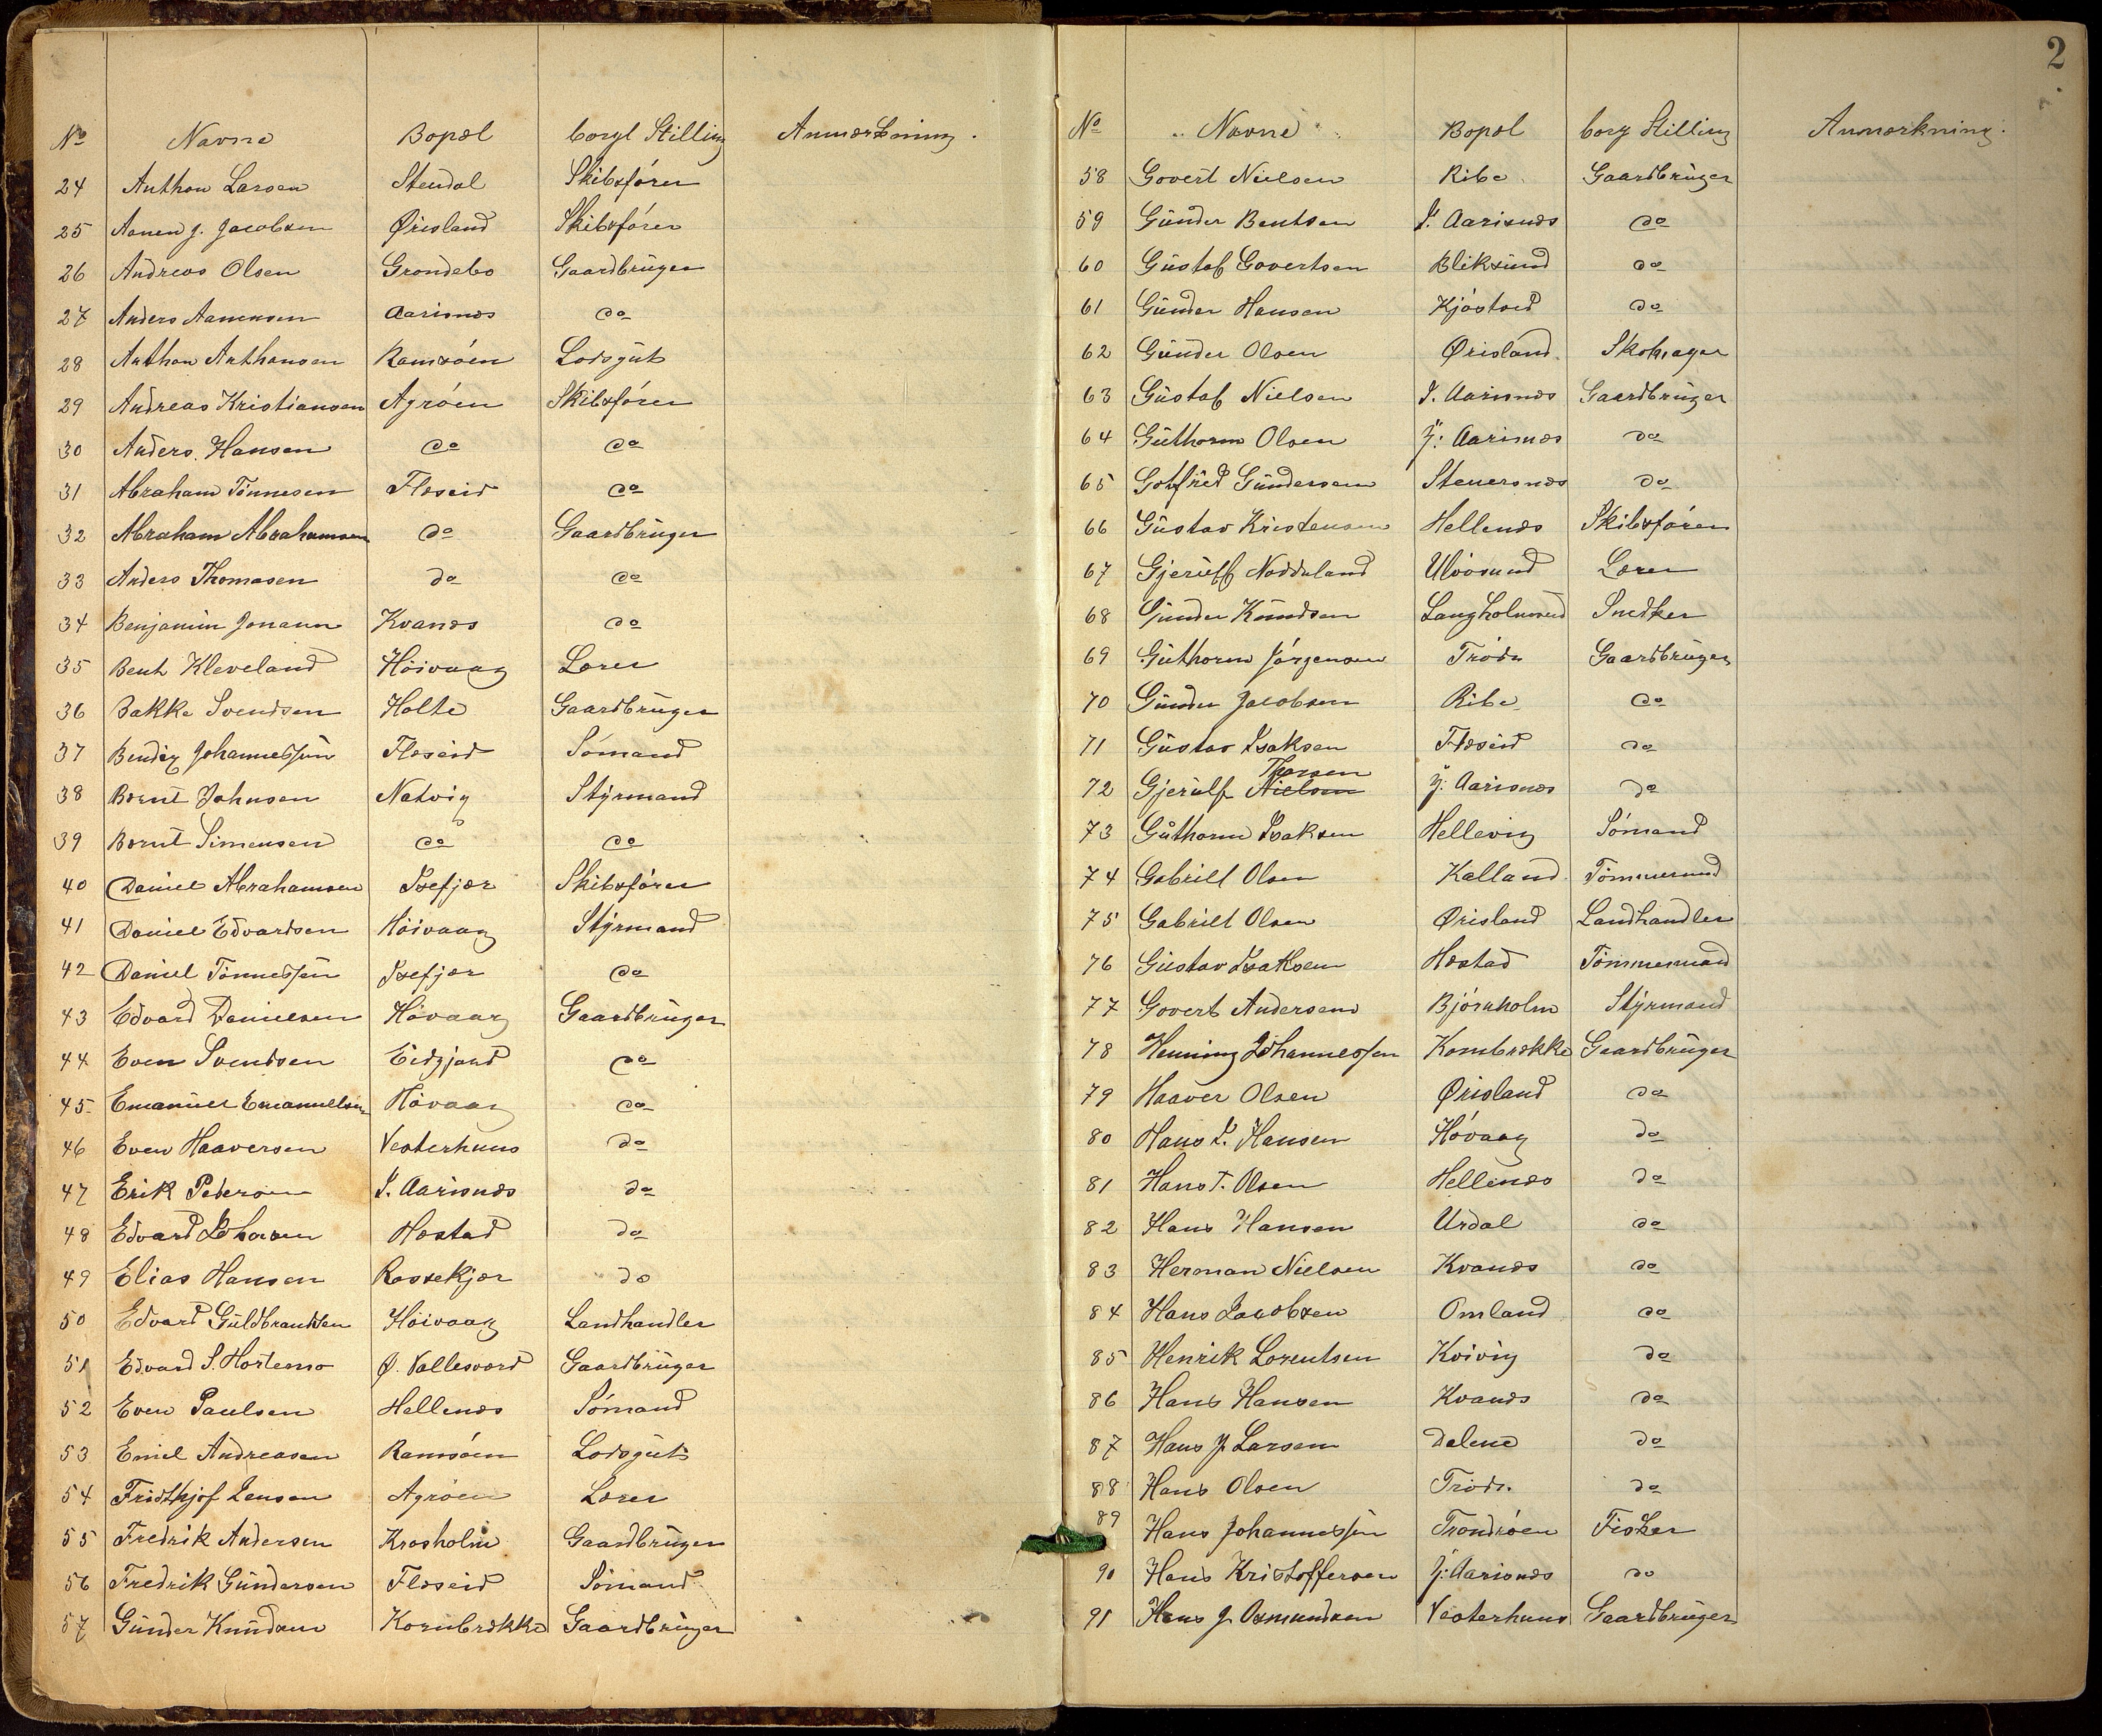 No Navne Bopæl borgl Stilling Anmærkning.
24 Anthon Larsen Stendal Skibsfører
25 Aanen J. Jacobsen Ørisland Skibsfører
26 Andreas Olsen Grondebo Gaardbrüger
27 Anders Aanensen Aarisnæs do
28 Anthon Anthonsen Ramsøen Lodsgüt
29 Andreas Kristiansen Agrøen Skibsfører
30 Anders Hansen do do
31 Abraham Tønnesen Flæseid do
32 Abraham Abrahamsen do Gaardbrüger
33 Anders Thomasen do do
34 Benjamin Jonann Kvanæs do
35 Bent Kleveland Höivaag Lærer
36 Bakke Svendsen Holte Gaardbrüger
37 Bendix Johannessen Flæseid Sømand
38 Bernt Johnsen Natvig Stÿrmand
39 Bernt Simensen do do
40 Daniel Abrahamsen Isefjær Skibsfører
41 Daniel Edvardsen Höivaag Stÿrmand
42 Daniel Tønnessen Isefjær do
43 Edvard Danielsen Høvaag Gaardbrüger
44 Even Svendsen Eidjord do
45 Emanuel Emanuelsen Høvaag do
46 Even Haaversen Vesterhuus do
47 Erik Petersen I. Aarisnæs do
48 Edvard Johnsen Hæstad do
49 Elias Hansen Rossekjær do
50 Edvard Güldbrandsen Höivaag Landhandler
51 Edvard S. Hortemo Ø. Vallesværd Gaardbrüger
52 Even Paulsen Hellenæs Sømand
53 Emil Andreasen Ramsøen Lodsgüt
54 Fridthjof Jensen Agrøen Lærer
55 Fredrik Andersen Krosholm Gaardbrüger
56 Fredrik Gündersen Flæseid Sømand
57 Günder Knüdsen Kornbrække Gaardbrüger
2
No Navne Bopæl borg Stilling Anmærkning.
58 Govert Nielsen Ribe Gaardbrüger
59 Günder Bentsen I. Aarisnæs do
60 Güstaf Govertsen Bliksünd do
61 Günder Hansen Kjøstad do
62 Günder Olsen Ørisland Skomager
63 Güstaf Nielsen I. Aarisnæs Gaardbrüger
64 Güthorm Olsen Y: Aarisnæs do
65 Gotfred Gündersen Steuersnæs do
66 Güstav Kristensen Hellenæs Skibsfører
67 Gjerülf Noddeland Ulvøsund Lærer
68 Günder Knudsen Langholmen Snedker
69 Güthorm Jørgensen Trøde Gaardbrüger
70 Günder Jacobsen Ribe do
71 Güstav Isaksen Flæseid do
Thorsen
72 Gjerülf Nielsen Y: Aarisnæs do
73 Güthorm Isaksen Hellevig Sømand
74 Gabriel Olsen Kalland Tømmermand
75 Gabriel Olsen Ørisland Landhandler
76 Güstav Isaksen Hæstad Tømmermand
77 Govert Andersen Bjørnholm Stÿrmand
78 Henning Johannessen Kornbrække Gaardbrüger
79 Haaver Olsen Ørisland do
80 Hans I. Hansen Høvaag do
81 Hans T. Olsen Hellenæs do
82 Hans Hansen Urdal do
83 Herman Nielsen Kvanæs do
84 Hans Jacobsen Omland do
85 Henrik Lorentsen Kvivig do
86 Hans Hansen Kvanæs do
87 Hans J Larsen Dalene do
88 Hans Olsen Trøde do
89 Hans Johannessen Trondøen Fisker
90 Hans Kristoffersen Y: Aarisnæs do
91 Hans J. Osmundsen Vesterhuus Gaardbrüger